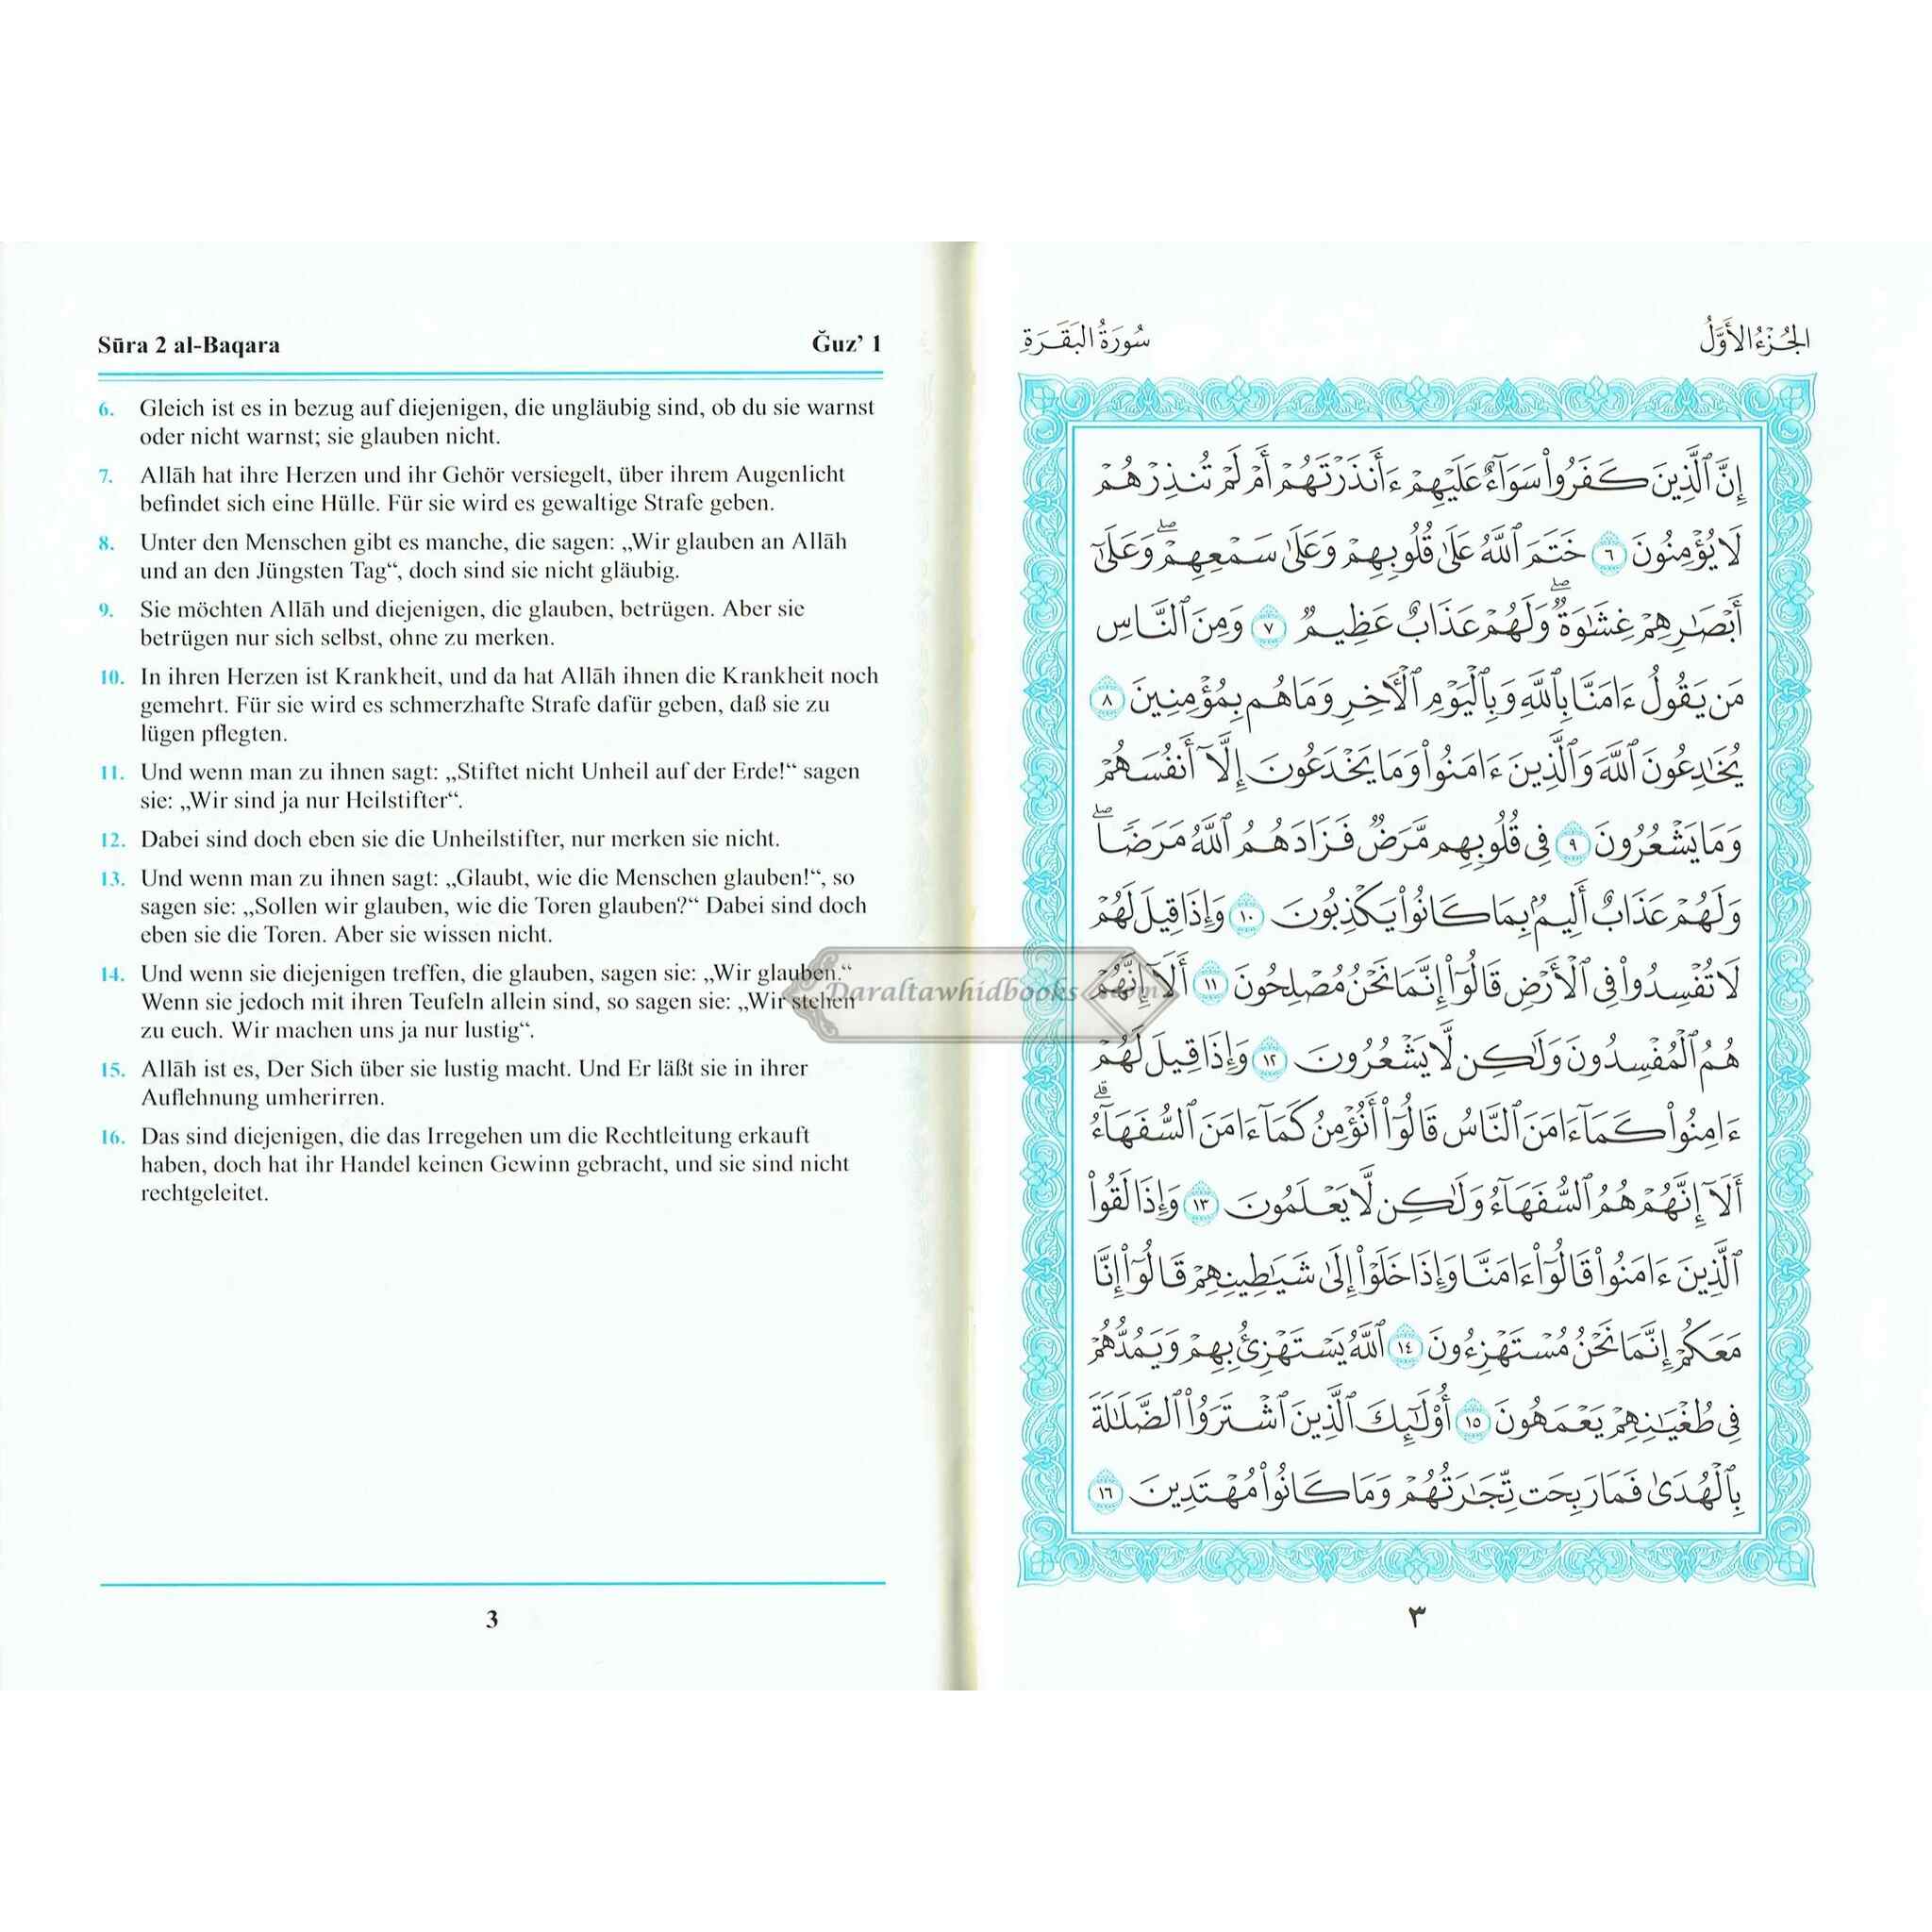 Sūra 2 al-Baqara
Ǧuz’ 1
6. Gleich ist es in bezug auf diejenigen, die ungläubig sind, ob du sie warnst
oder nicht warnst; sie glauben nicht.
7. Allāh hat ihre Herzen und ihr Gehör versiegelt, über ihrem Augenlicht
befindet sich eine Hülle. Für sie wird es gewaltige Strafe geben.
8. Unter den Menschen gibt es manche, die sagen: „Wir glauben an Allāh
und an den Jüngsten Tag“, doch sind sie nicht gläubig.
9. Sie möchten Allāh und diejenigen, die glauben, betrügen. Aber sie
betrügen nur sich selbst, ohne zu merken.
10. In ihren Herzen ist Krankheit, und da hat Allāh ihnen die Krankheit noch
gemehrt. Für sie wird es schmerzhafte Strafe dafür geben, daß sie zu
lügen pflegten.
11. Und wenn man zu ihnen sagt: „Stiftet nicht Unheil auf der Erde!“ sagen
sie: „Wir sind ja nur Heilstifter“.
12. Dabei sind doch eben sie die Unheilstifter, nur merken sie nicht.
13. Und wenn man zu ihnen sagt: „Glaubt, wie die Menschen glauben!“, so
sagen sie: „Sollen wir glauben, wie die Toren glauben?“ Dabei sind doch
eben sie die Toren. Aber sie wissen nicht.
14. Und wenn sie diejenigen treffen, die glauben, sagen sie: „Wir glauben.“
Wenn sie jedoch mit ihren Teufeln allein sind, so sagen sie: „Wir stehen
zu euch. Wir machen uns ja nur lustig“.
15. Allāh ist es, Der Sich über sie lustig macht. Und Er läßt sie in ihrer
Auflehnung umherirren.
16. Das sind diejenigen, die das Irregehen um die Rechtleitung erkauft
haben, doch hat ihr Handel keinen Gewinn gebracht, und sie sind nicht
rechtgeleitet.
3
الجُزْءُ الأَوَّلُ
سُورَةُ البَقَرَةِ
إِنَّ ٱلَّذِينَ كَفَرُوا۟ سَوَآءٌ عَلَيْهِمْ ءَأَنذَرْتَهُمْ أَمْ لَمْ تُنذِرْهُمْ
لَا يُؤْمِنُونَ ٦ خَتَمَ ٱللَّهُ عَلَىٰ قُلُوبِهِمْ وَعَلَىٰ سَمْعِهِمْ ۖ وَعَلَىٰٓ
أَبْصَـٰرِهِمْ غِشَـٰوَةٌ ۖ وَلَهُمْ عَذَابٌ عَظِيمٌ ٧ وَمِنَ ٱلنَّاسِ
مَن يَقُولُ ءَامَنَّا بِٱللَّهِ وَبِٱلْيَوْمِ ٱلْـَٔاخِرِ وَمَا هُم بِمُؤْمِنِينَ ٨
يُخَـٰدِعُونَ ٱللَّهَ وَٱلَّذِينَ ءَامَنُوا۟ وَمَا يَخْدَعُونَ إِلَّآ أَنفُسَهُمْ
وَمَا يَشْعُرُونَ ٩ فِى قُلُوبِهِم مَّرَضٌ فَزَادَهُمُ ٱللَّهُ مَرَضًا ۖ
وَلَهُمْ عَذَابٌ أَلِيمٌۢ بِمَا كَانُوا۟ يَكْذِبُونَ ١٠ وَإِذَا قِيلَ لَهُمْ
لَا تُفْسِدُوا۟ فِى ٱلْأَرْضِ قَالُوٓا۟ إِنَّمَا نَحْنُ مُصْلِحُونَ ١١ أَلَآ إِنَّهُمْ
هُمُ ٱلْمُفْسِدُونَ وَلَـٰكِن لَّا يَشْعُرُونَ ١٢ وَإِذَا قِيلَ لَهُمْ
ءَامِنُوا۟ كَمَآ ءَامَنَ ٱلنَّاسُ قَالُوٓا۟ أَنُؤْمِنُ كَمَآ ءَامَنَ ٱلسُّفَهَآءُ ۗ
أَلَآ إِنَّهُمْ هُمُ ٱلسُّفَهَآءُ وَلَـٰكِن لَّا يَعْلَمُونَ ١٣ وَإِذَا لَقُوا۟
ٱلَّذِينَ ءَامَنُوا۟ قَالُوٓا۟ ءَامَنَّا وَإِذَا خَلَوْا۟ إِلَىٰ شَيَـٰطِينِهِمْ قَالُوٓا۟ إِنَّا
مَعَكُمْ إِنَّمَا نَحْنُ مُسْتَهْزِءُونَ ١٤ ٱللَّهُ يَسْتَهْزِئُ بِهِمْ وَيَمُدُّهُمْ
فِى طُغْيَـٰنِهِمْ يَعْمَهُونَ ١٥ أُو۟لَـٰٓئِكَ ٱلَّذِينَ ٱشْتَرَوُا۟ ٱلضَّلَـٰلَةَ
بِٱلْهُدَىٰ فَمَا رَبِحَت تِّجَـٰرَتُهُمْ وَمَا كَانُوا۟ مُهْتَدِينَ ١٦
٣
Daraltawhidbooks.com